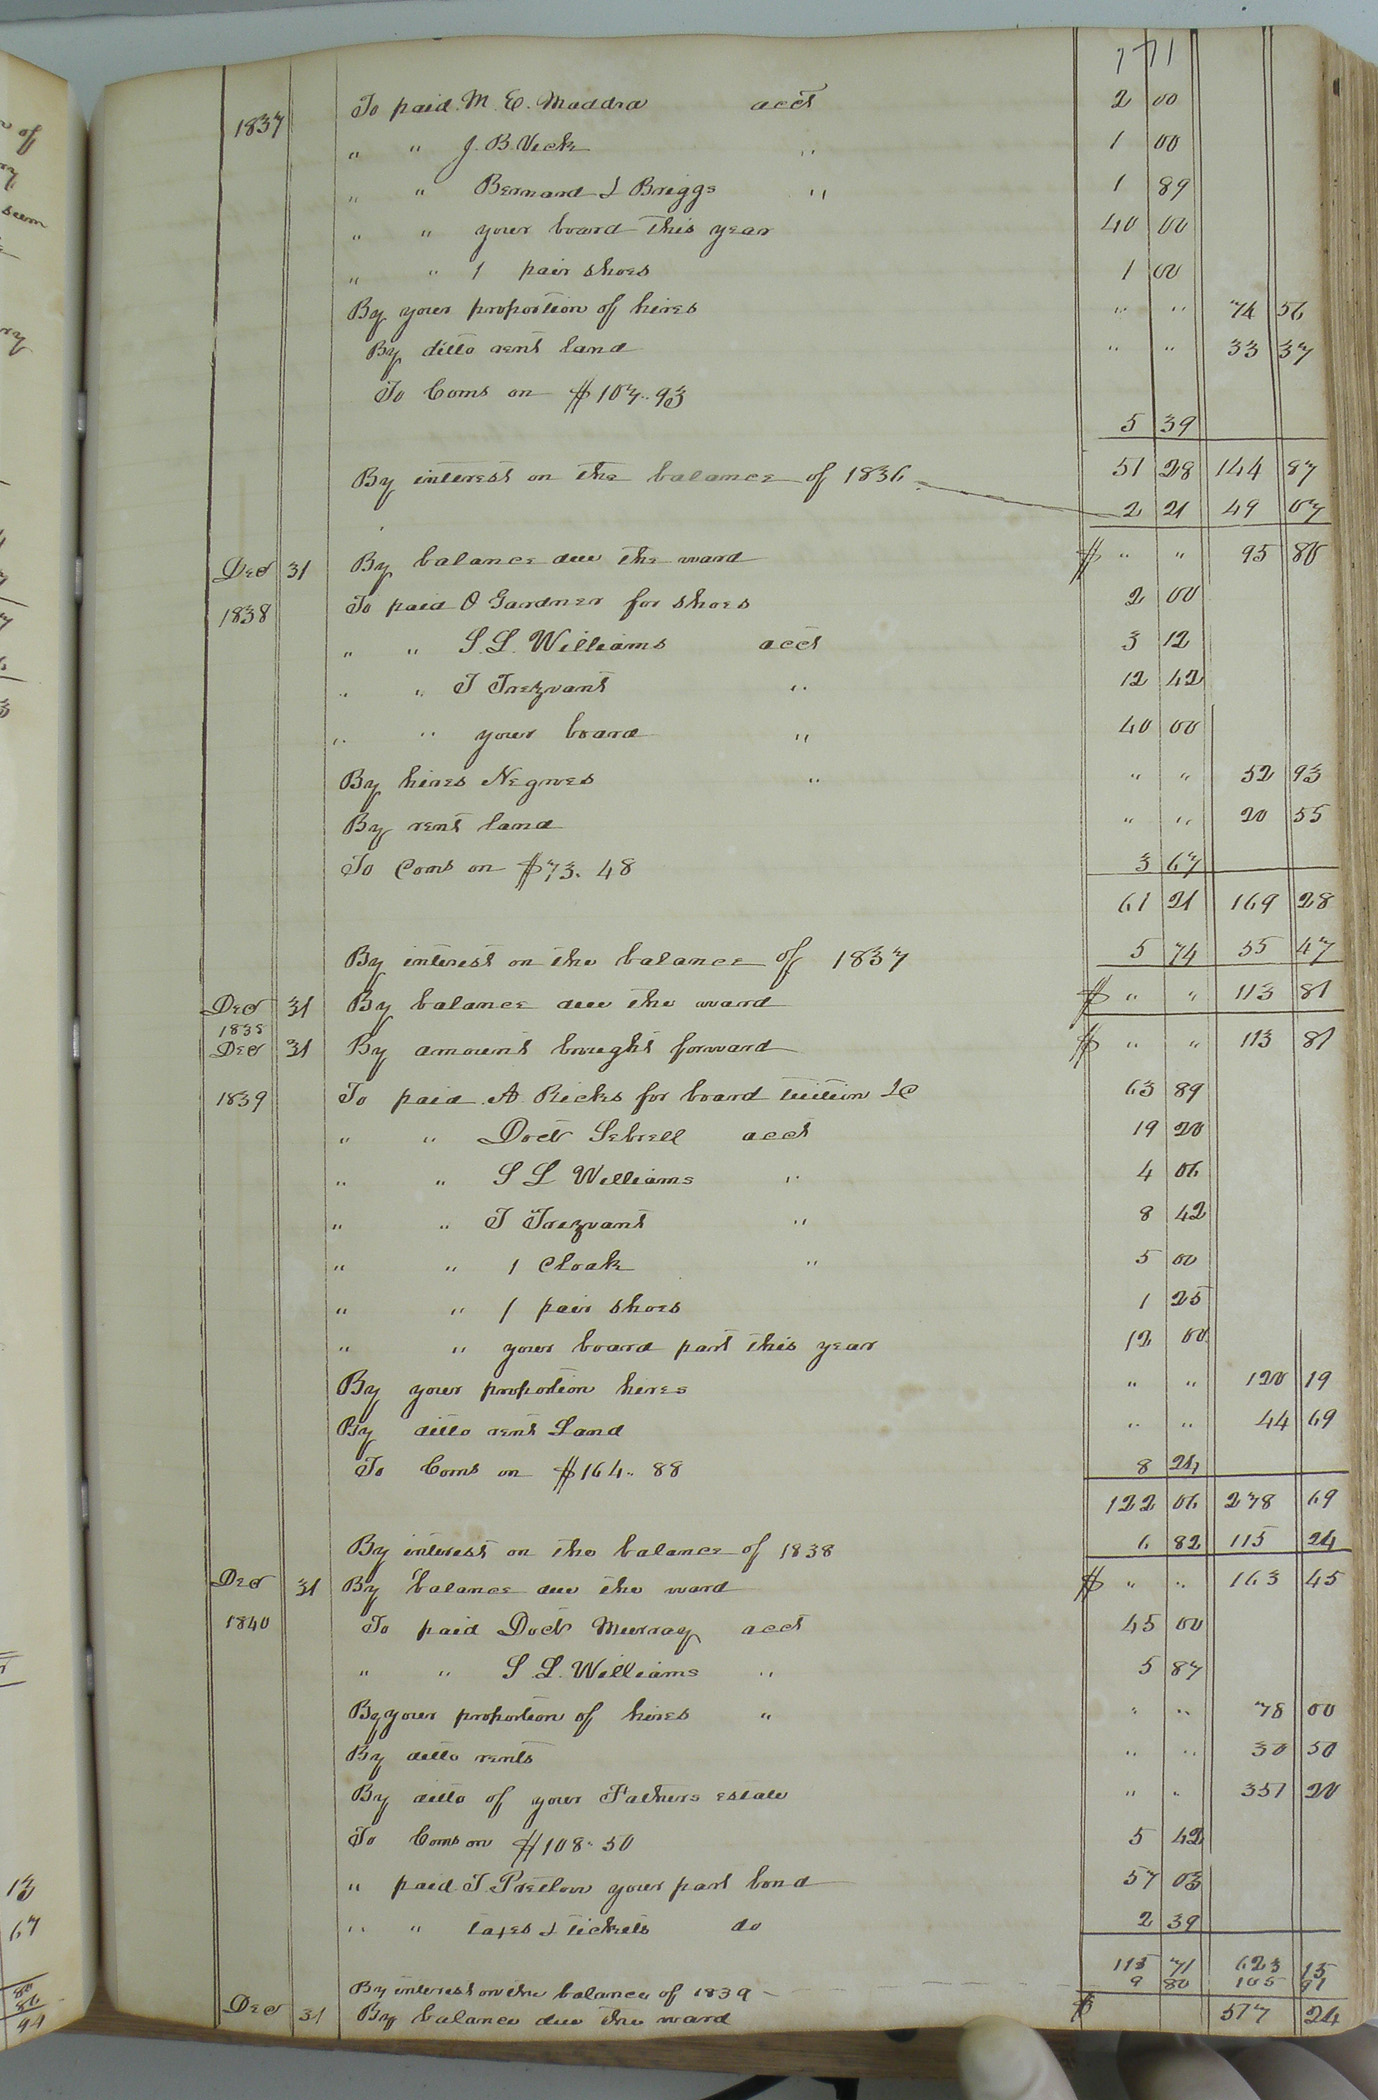 171
1837 To paid M. E. Maddra acct 2 00
" " J. B. Vick " 1 00
" " Bernard & Briggs " 1 89
" " your board this year 40 00
" " 1 pair shoes 1 00
By your proportion of hires " " 74 56
By ditto rent land " " 33 37
To Coms on $107..93
5 39
51 28 144 87
By interest on the balance of 1836
2 21 49 07
Dec 31 By balance due the ward $ " " 95 80
1838 To paid O Gardner for shoes 2 00
" " S. L. Williams acct 3 12
" " T Trezvant " 12 42
" " your board " 40 00
By hires Negroes " " " 52 93
By rent land " " 20 55
To Coms on $73. 48 3 67
61 21 169 28
By interest on the balance of 1837 5 74 55 47
Dec 31 By balance due the ward $ " " 113 81
1838
Dec 31 By amount brought forward $ " " 113 81
1839 To paid A Ricks for board tuition &c 63 89
" " Doct Sebrell acct 19 20
" " S L Williams " 4 06
" " T Trezvant " 8 42
" " 1 Cloak " 5 00
" " 1 pair shoes 1 25
" " your board part this year 12 00
By your proportion hires " " 120 19
By ditto rent Land " " 44 69
To Coms on $164.. 88 8 24
122 06 278 69
By interest on the balance of 1838 6 82 115 24
Dec 31 By balance due the ward $ " " 163 45
1840 To paid Doct Murray acct 45 00
" " S. L. Williams " 5 87
By your proportion of hires " " " 78 00
By ditto rents " " 30 50
By ditto of your Fathers estate " " 351 20
To Coms on $108.. 50 5 42
" paid T Pretlow your part bond 57 03
" " taxes & tickets do 2 39
115 71 623 15
By interest on the balance of 1839 9 80 105 91
Dec 31 By balance due the ward $ 517 24